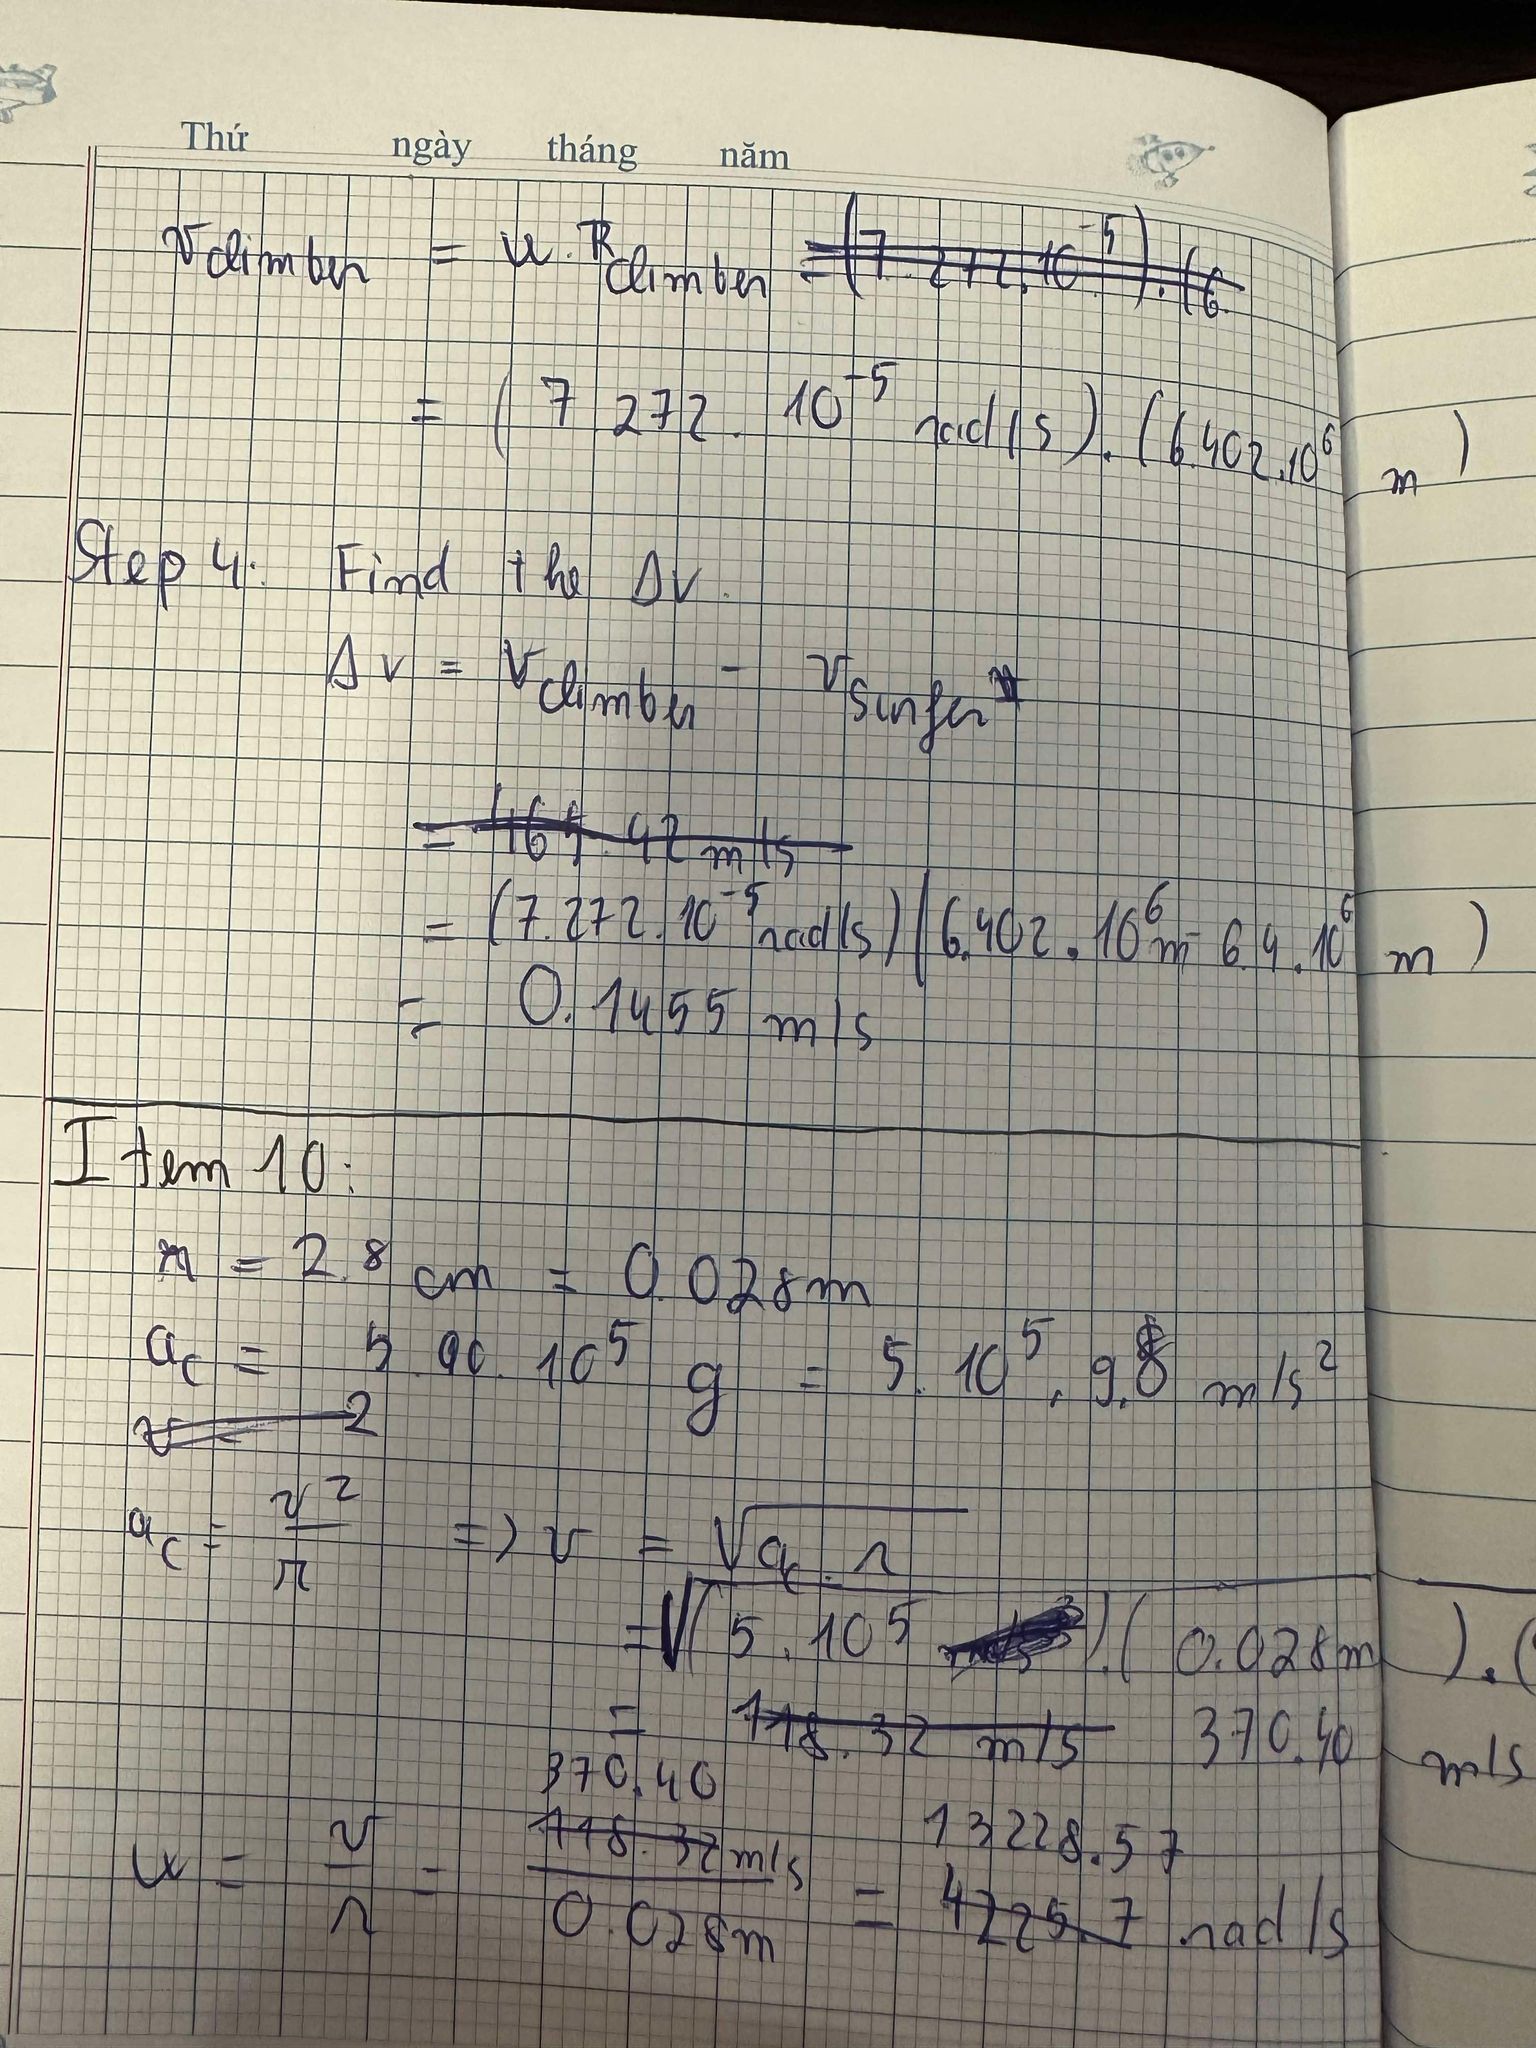 Thứ ngày tháng năm
v climber = ω . R climber = (7.272.10^-5) . (6.
= (7.272 . 10^-5 rad/s) . (6.402.10^6 m)
Step 4: Find the Δv.
Δv = v climber - v surfer
= 465.42 m/s
= (7.272.10^-5 rad/s) (6.402.10^6 m - 6.4.10^6 m)
= 0.1455 m/s
Item 10:
r = 2.8 cm = 0.028m
a_c = 5.00.10^5 g = 5.10^5 . 9.8 m/s^2
v = 2
a_c = v^2/r => v = √(a_c . r)
= √(5.10^5).(0.028m).(
= 118.32 m/s 370.40 m/s
370.40 13228.57
ω = v/r = 118.32 m/s / 0.028m = 4225.7 rad/s